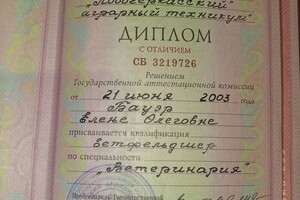 "Новочеркасский
аграрный техникум"
ДИПЛОМ
С ОТЛИЧИЕМ
СБ 3219726
Решением
Государственной аттестационной комиссии
от 21 июня 2003 года
Бауэр
Елене Олеговне
присваивается квалификация
ветфельдшер
по специальности
"Ветеринария"
Председатель Государственной